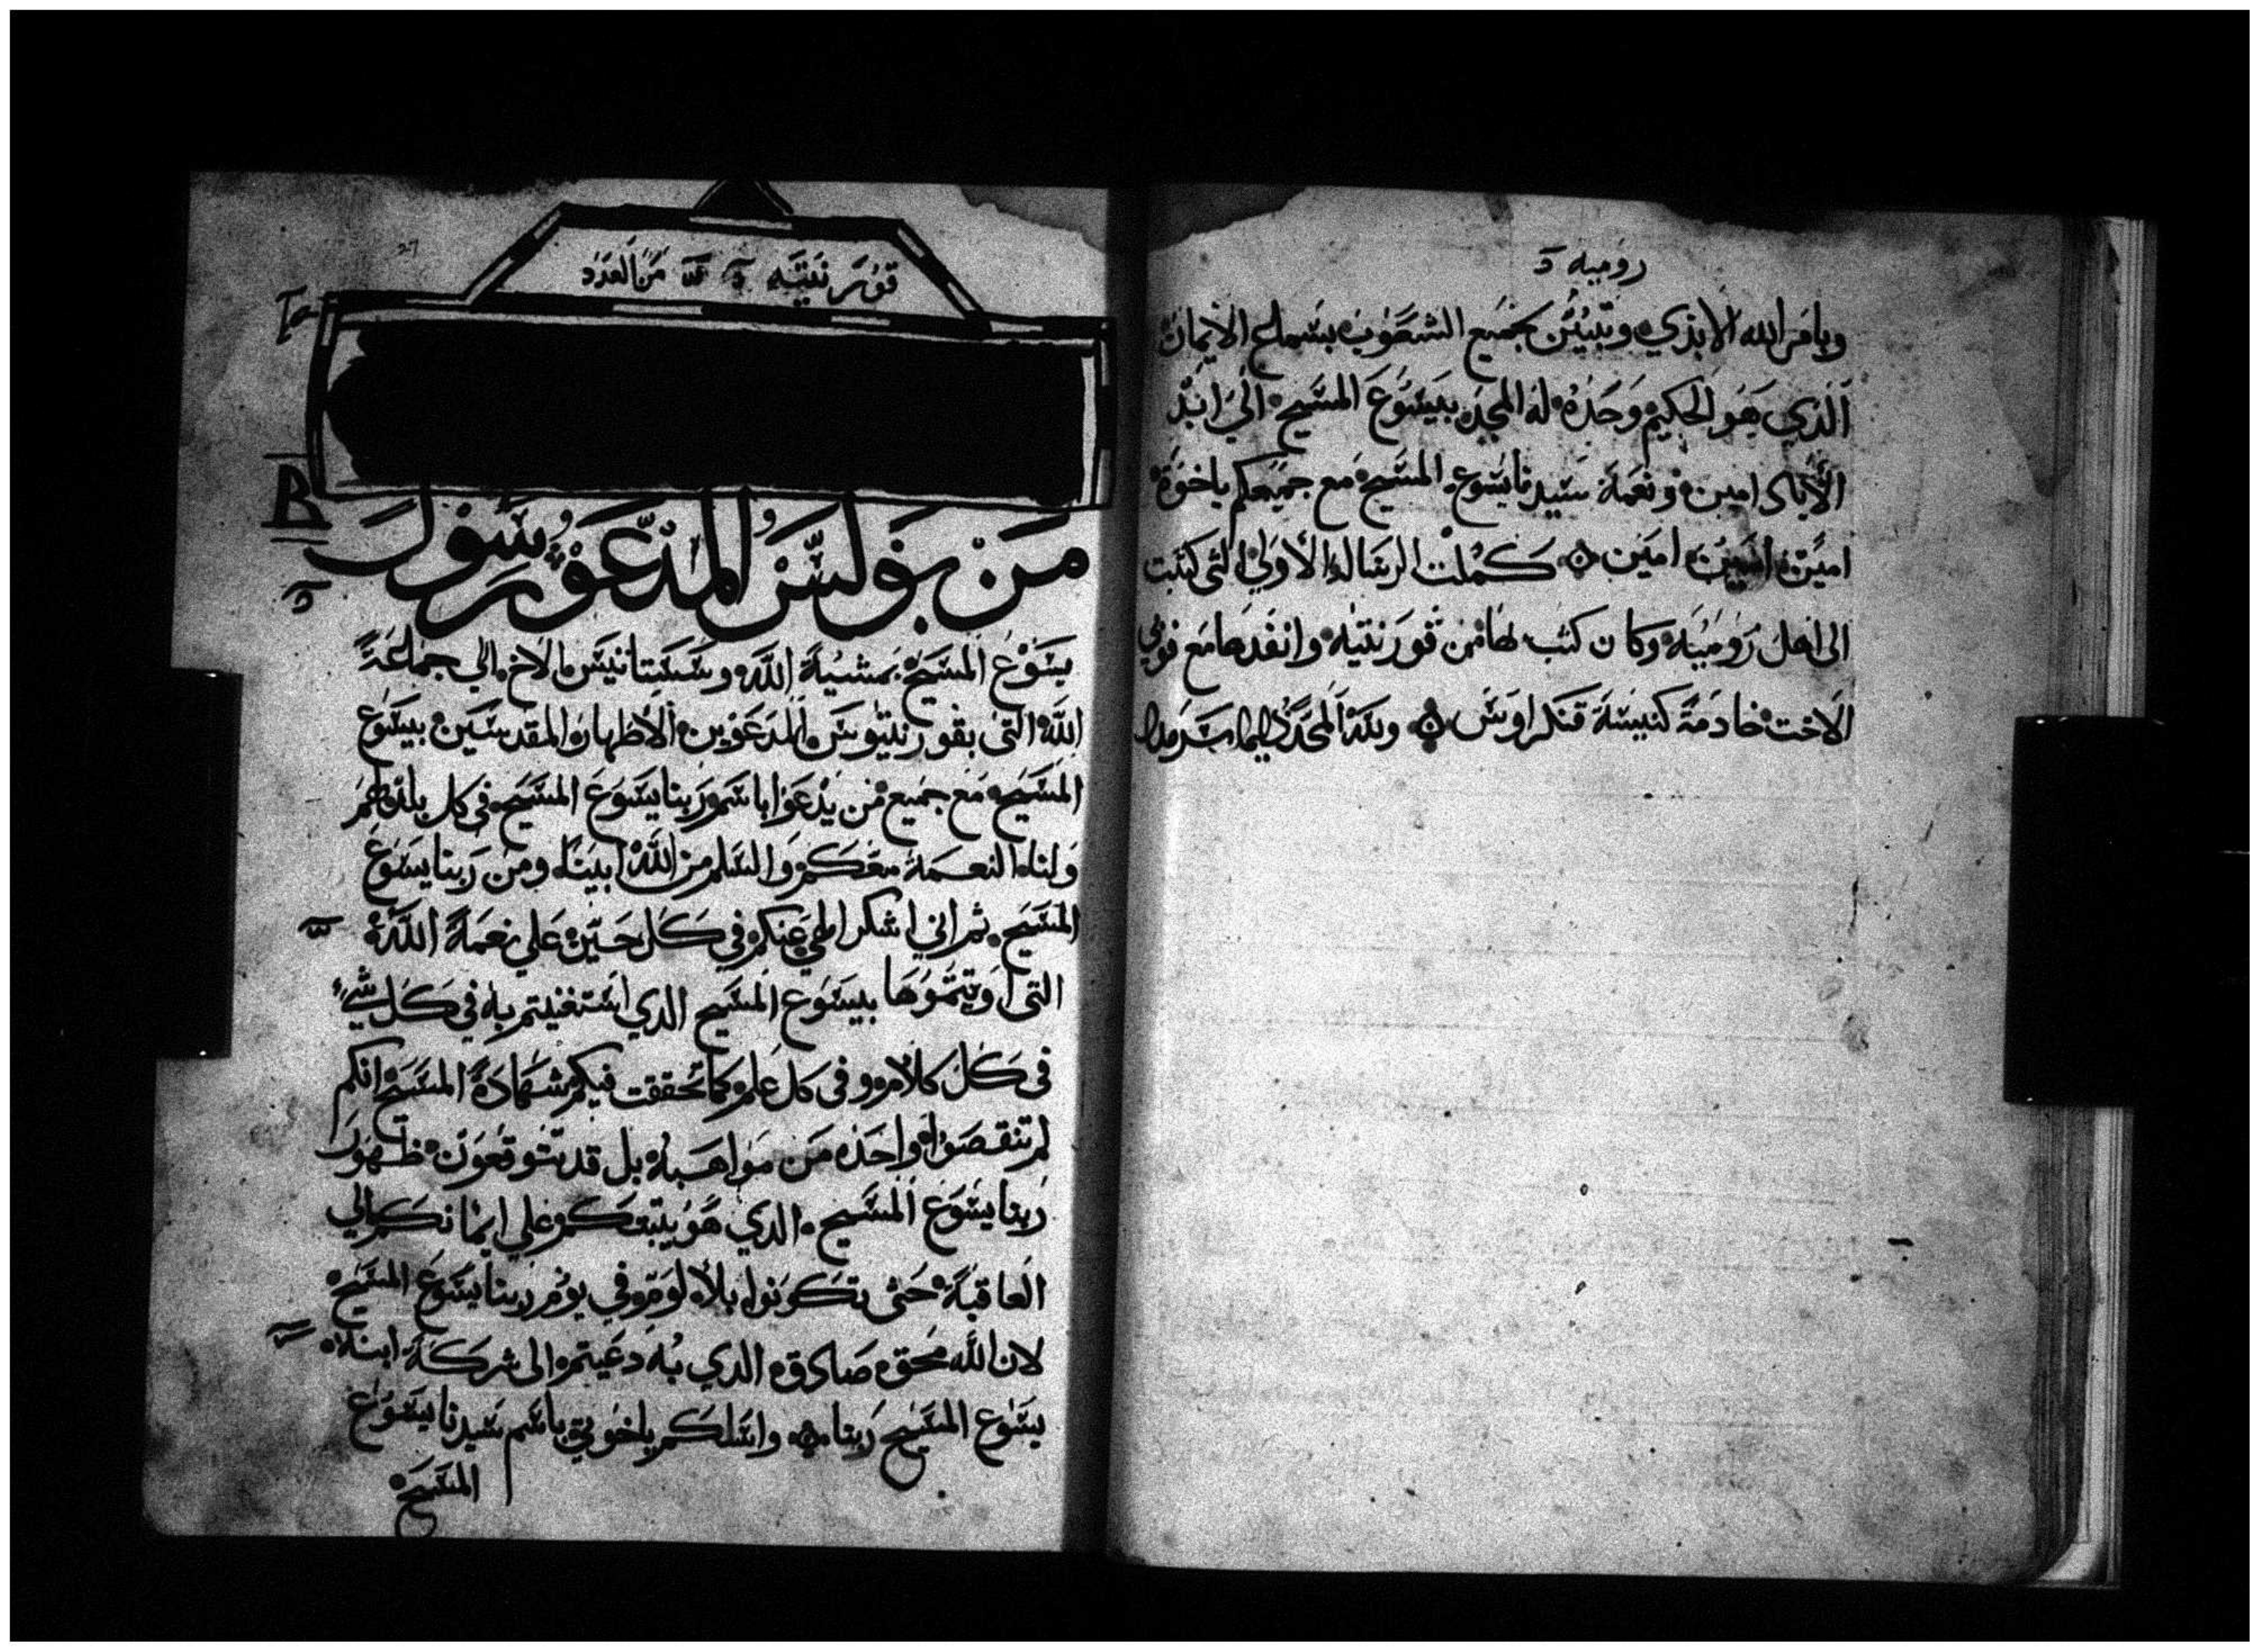 روميه
وبامر الله الابدي وتبين لجميع الشعوب بسماع الايمان
الذي هو الحكيم وحده له المجد بيسوع المسيح الي ابد
الاباد امين ونعمة سيدنا يسوع المسيح مع جميعكم ياخوة
امين امين امين كملت الرسالة الاولي التي كتبت
الى اهل رومية وكان كتب لها من قورنتيه وانفدها مع فوبي
الاخت خادمة كنيسة قنكراوس ولله المجد دايما سرمدا
27
قورنتيه من العدد
B
من بولس المدعو رسول
يسوع المسيح بمشية الله وسستانيس الاخ الي جماعة
الله التى بقورنتيوس المدعوين الاطهار المقدسين بيسوع
المسيح مع جميع من يدعوا باسم ربنا يسوع المسيح فى كل بلد لهم
ولنا النعمة معكم والسلم من الله ابينا ومن ربنا يسوع
المسيح ثم اني اشكر الهي عنكم في كل حين علي نعمة الله
التى اوتيتموها بيسوع المسيح الدي استغنيتم به في كل شي
فى كل كلام وفى كل علم كما تحققت فيكم شهادة المسيح انكم
لم تنقصوا واحده من مواهبه بل قد تتوقعون ظهور
ربنا يسوع المسيح الدي هو يتبتكم علي ايمانكم الي
العاقبة حتى تكونوا بلا لومه في يوم ربنا يسوع المسيح
لان الله محق صادق الدي به دعيتم الى شركة ابنه
يسوع المسيح ربنا واسلكم ياخوتي باسم سيدنا يسوع
المسيح